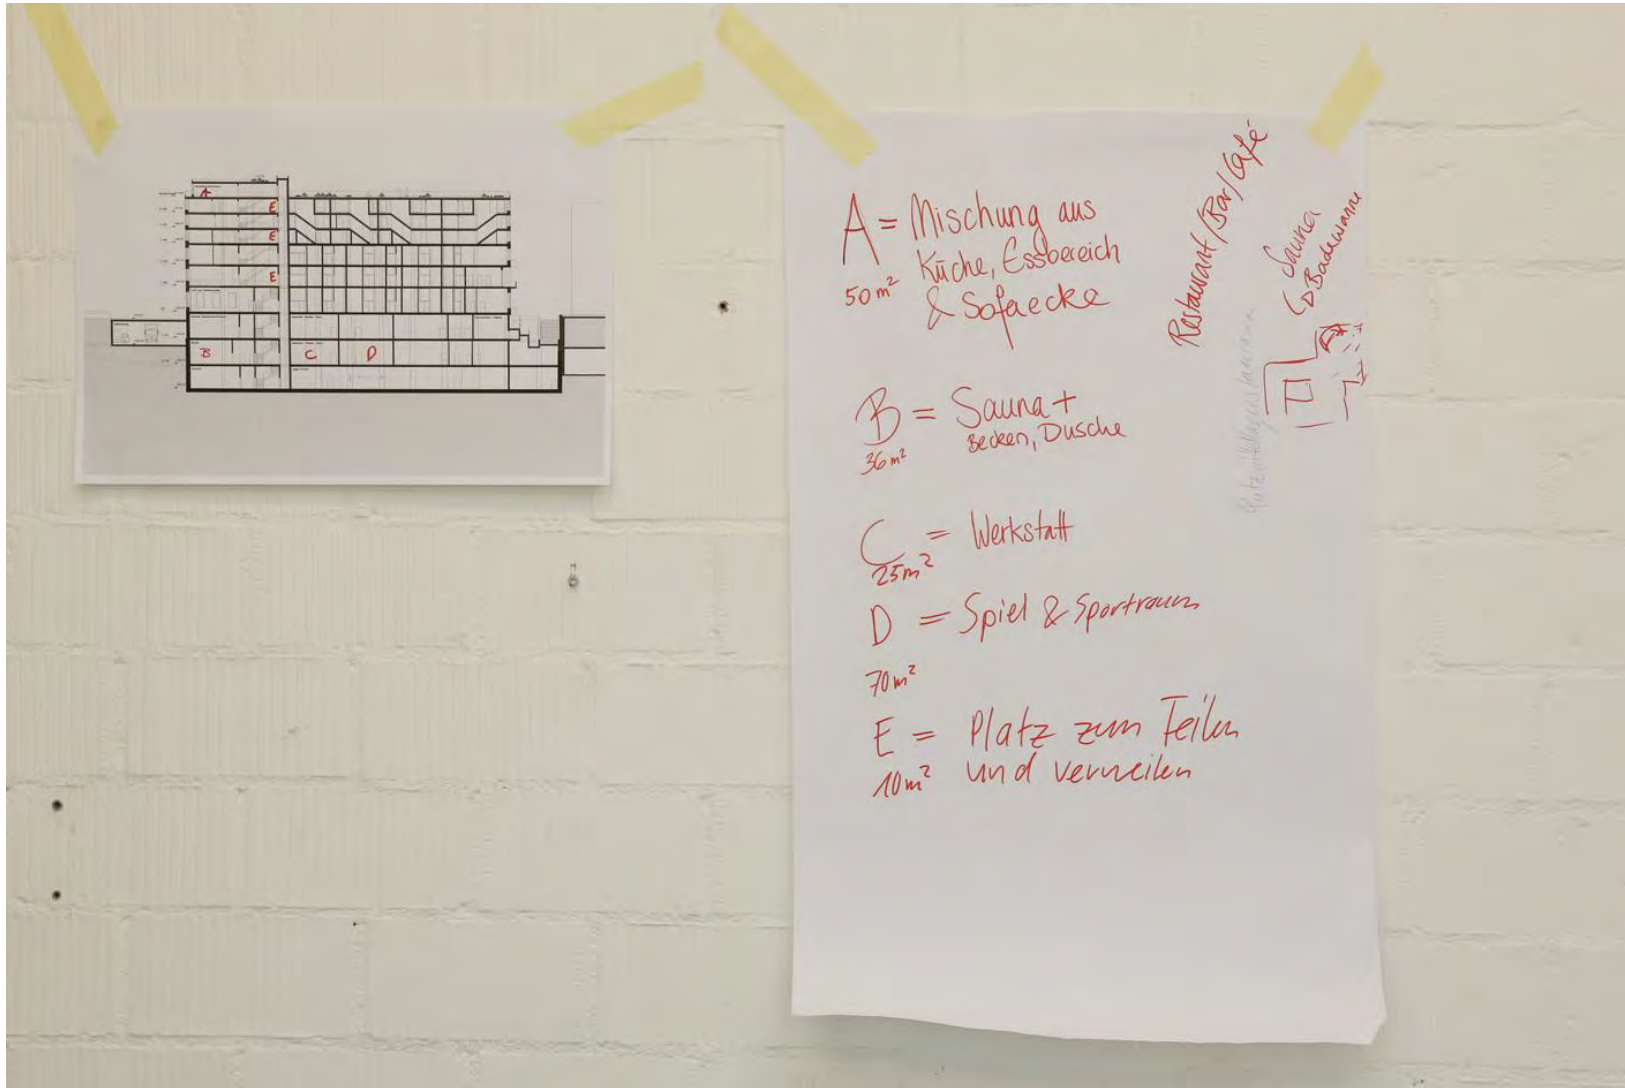 A
E
E
E
B
C
D
A = Mischung aus
Küche, Essbereich
50m² & Sofaecke
B = Sauna +
Becken, Dusche
36m²
C = Werkstatt
25m²
D = Spiel & Sportraum
70m²
E = Platz zum Teilen
10m² und verweilen
Restaurant/Bar/Café
Sauna
Badewanne